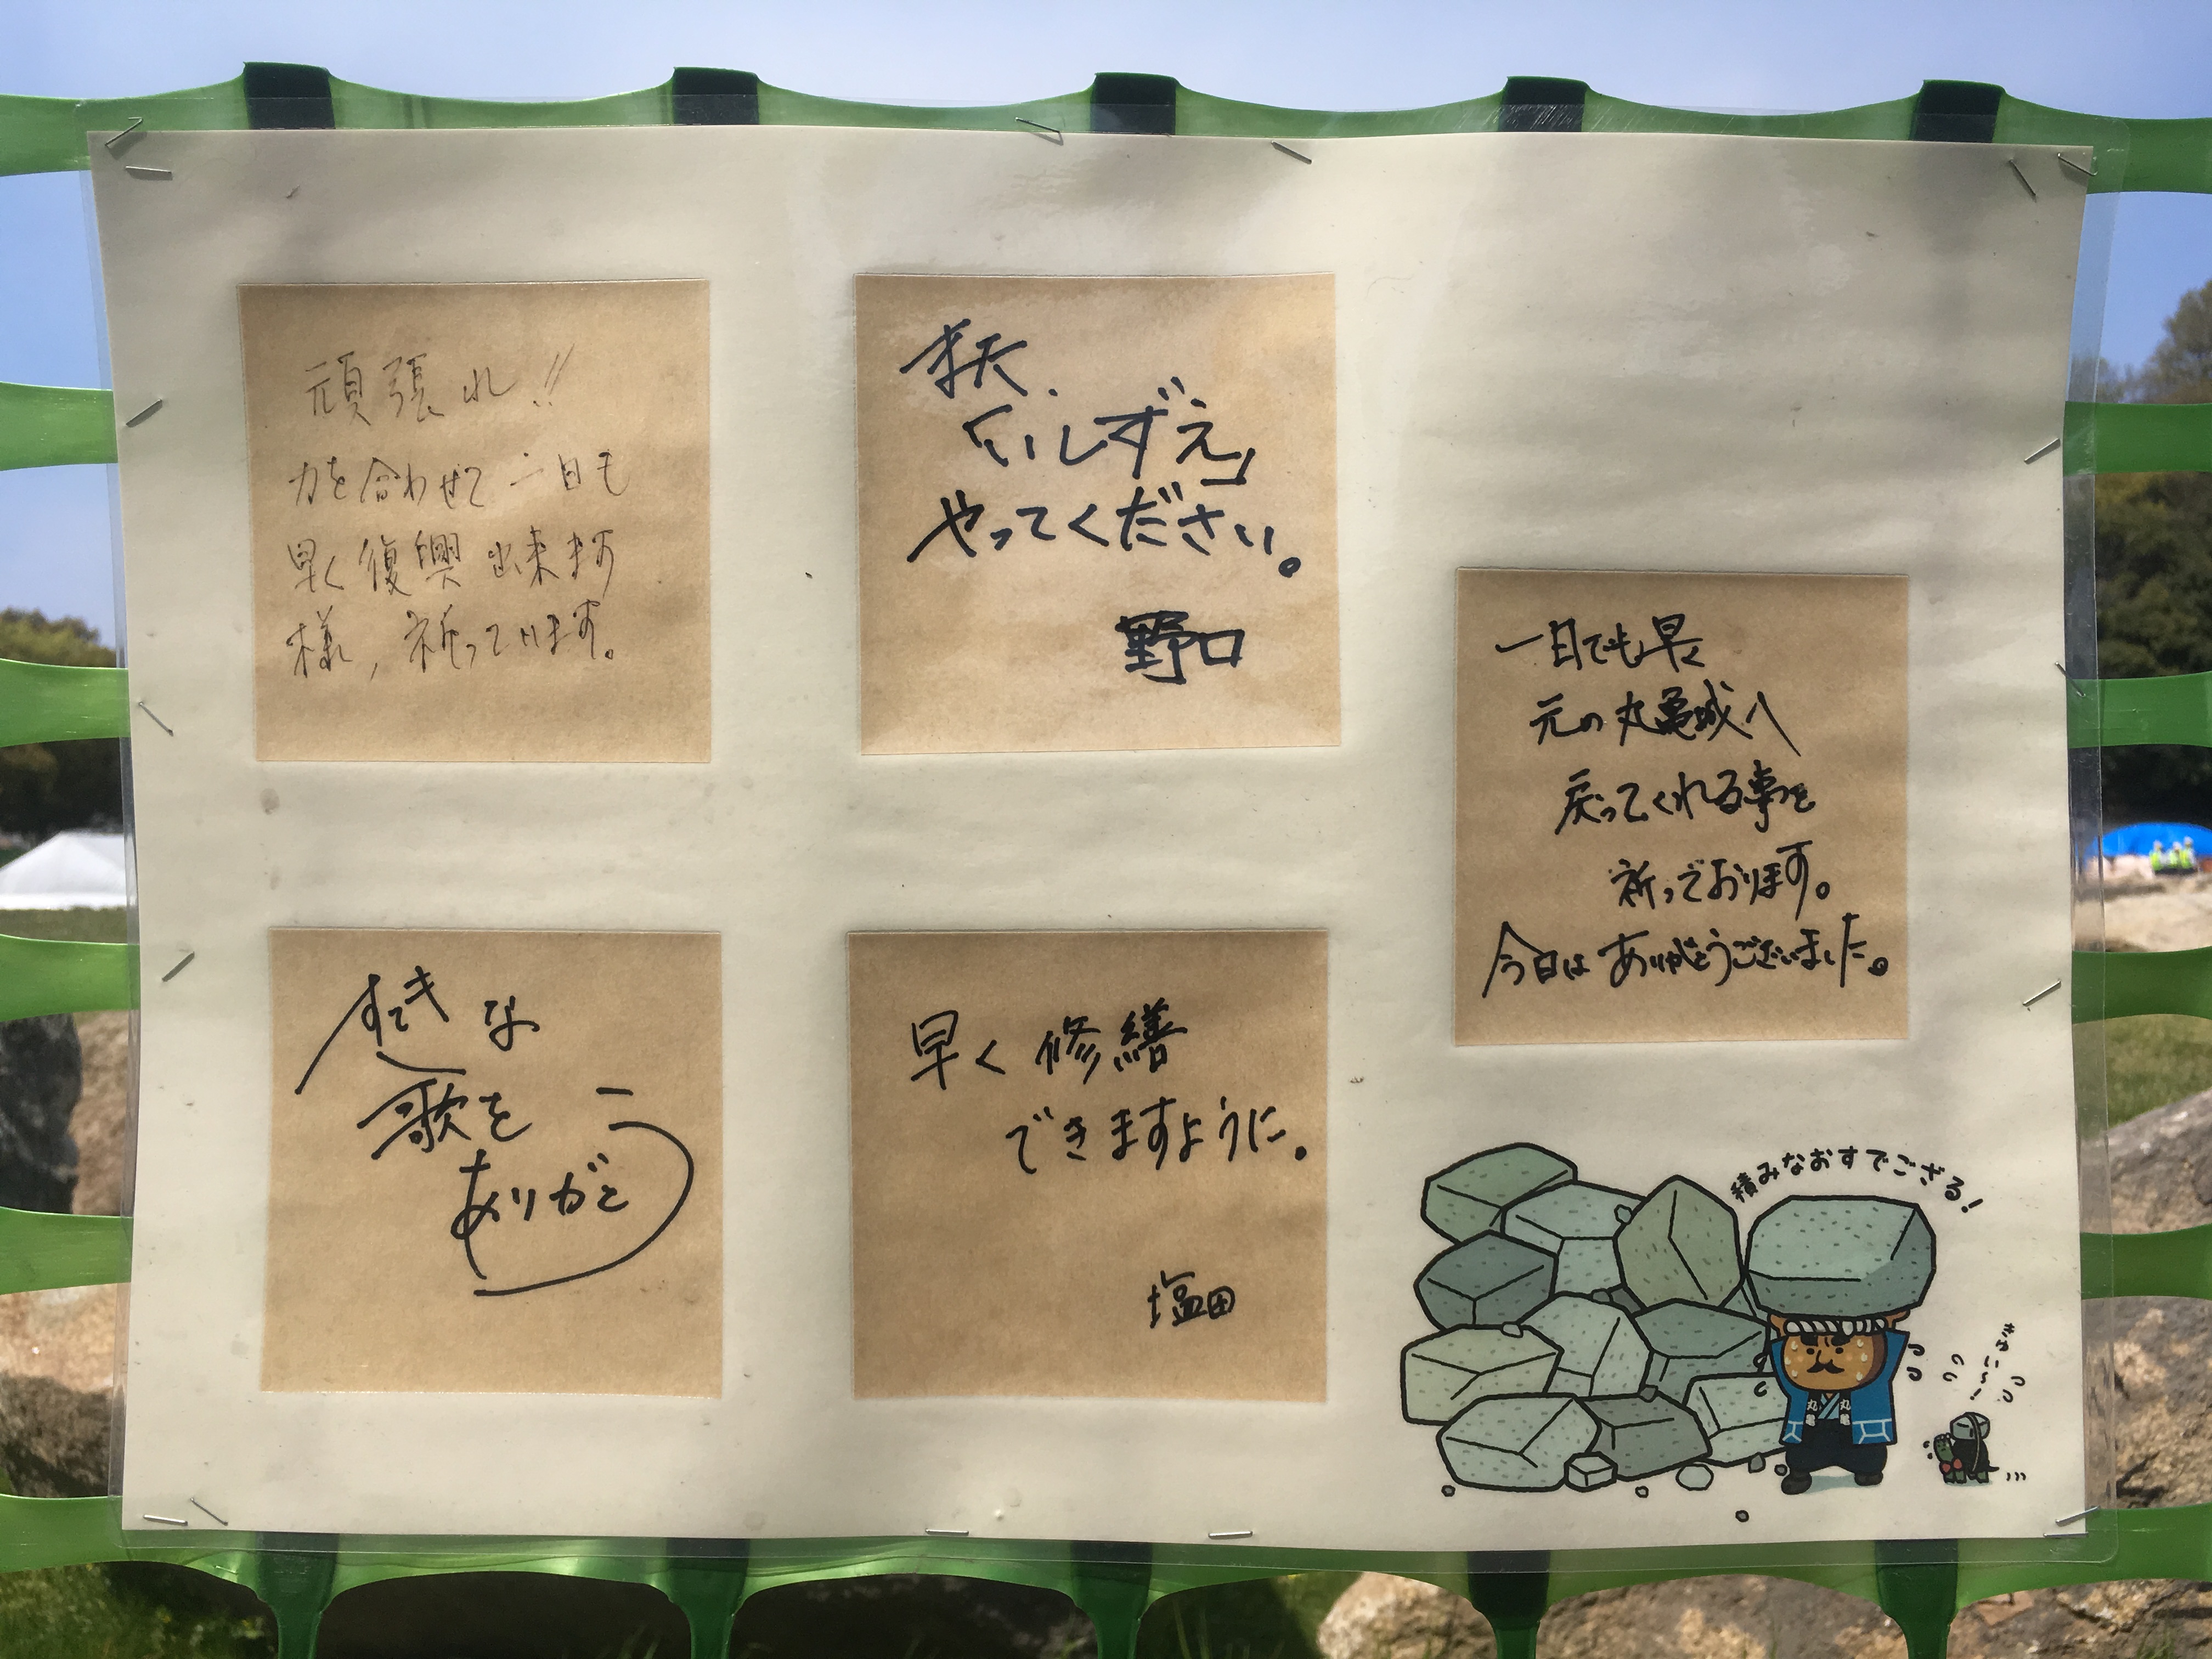 頑張れ!!
力を合わせて一日も
早く復興出来ます
様、祈っています。
また、
「いしずえ」
やってください。
野口
一日でも早く
元の丸亀城へ
戻ってくれる事を
祈っております。
今日はありがとうございました。
すてきな
歌を
ありがとう
早く修繕
できますように。
塩田
積みなおすでござる!
丸亀
丸亀